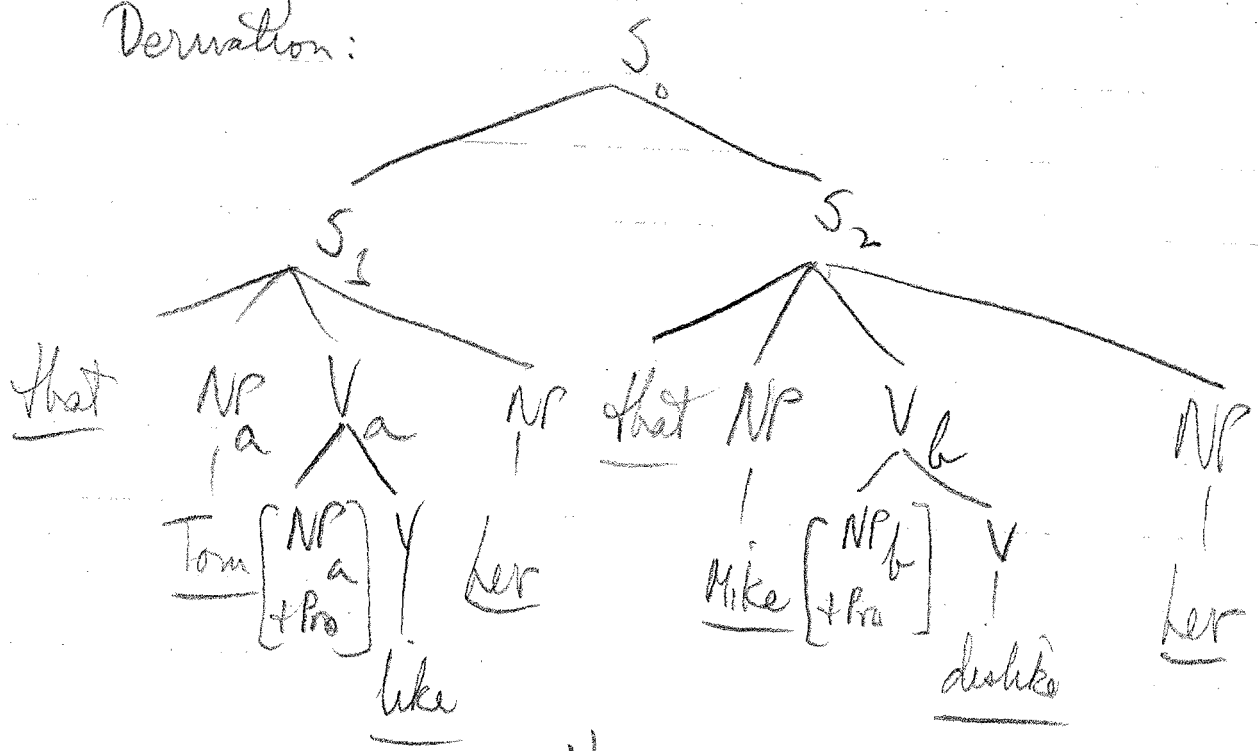 Derivation:
S₀
S₁ S₂
that NPₐ Vₐ NP that NP V_b NP
Tom [NPₐ +Pro] V her Mike [NP_b +Pro] V her
like dislike